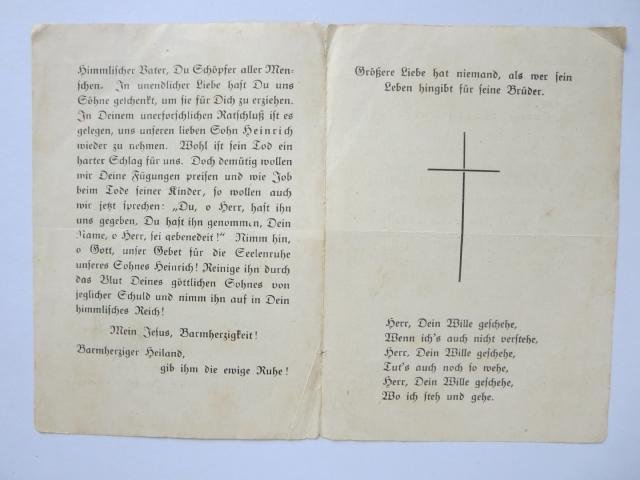 Himmlischer Vater, Du Schöpfer aller Men-
schen. In unendlicher Liebe hast Du uns
Söhne geschenkt, um sie für Dich zu erziehen.
In Deinem unerforschlichen Ratschluß ist es
gelegen, uns unseren lieben Sohn Heinrich
wieder zu nehmen. Wohl ist sein Tod ein
harter Schlag für uns. Doch demütig wollen
wir Deine Fügungen preisen und wie Job
beim Tode seiner Kinder, so wollen auch
wir jetzt sprechen: „Du, o Herr, hast ihn
uns gegeben, Du hast ihn genommen, Dein
Name, o Herr, sei gebenedeit!" Nimm hin,
o Gott, unser Gebet für die Seelenruhe
unseres Sohnes Heinrich! Reinige ihn durch
das Blut Deines göttlichen Sohnes von
jeglicher Schuld und nimm ihn auf in Dein
himmlisches Reich!
Mein Jesus, Barmherzigkeit!
Barmherziger Heiland,
gib ihm die ewige Ruhe!
Größere Liebe hat niemand, als wer sein
Leben hingibt für seine Brüder.
Herr, Dein Wille geschehe,
Wenn ich's auch nicht verstehe,
Herr, Dein Wille geschehe,
Tut's auch noch so wehe,
Herr, Dein Wille geschehe,
Wo ich steh und gehe.